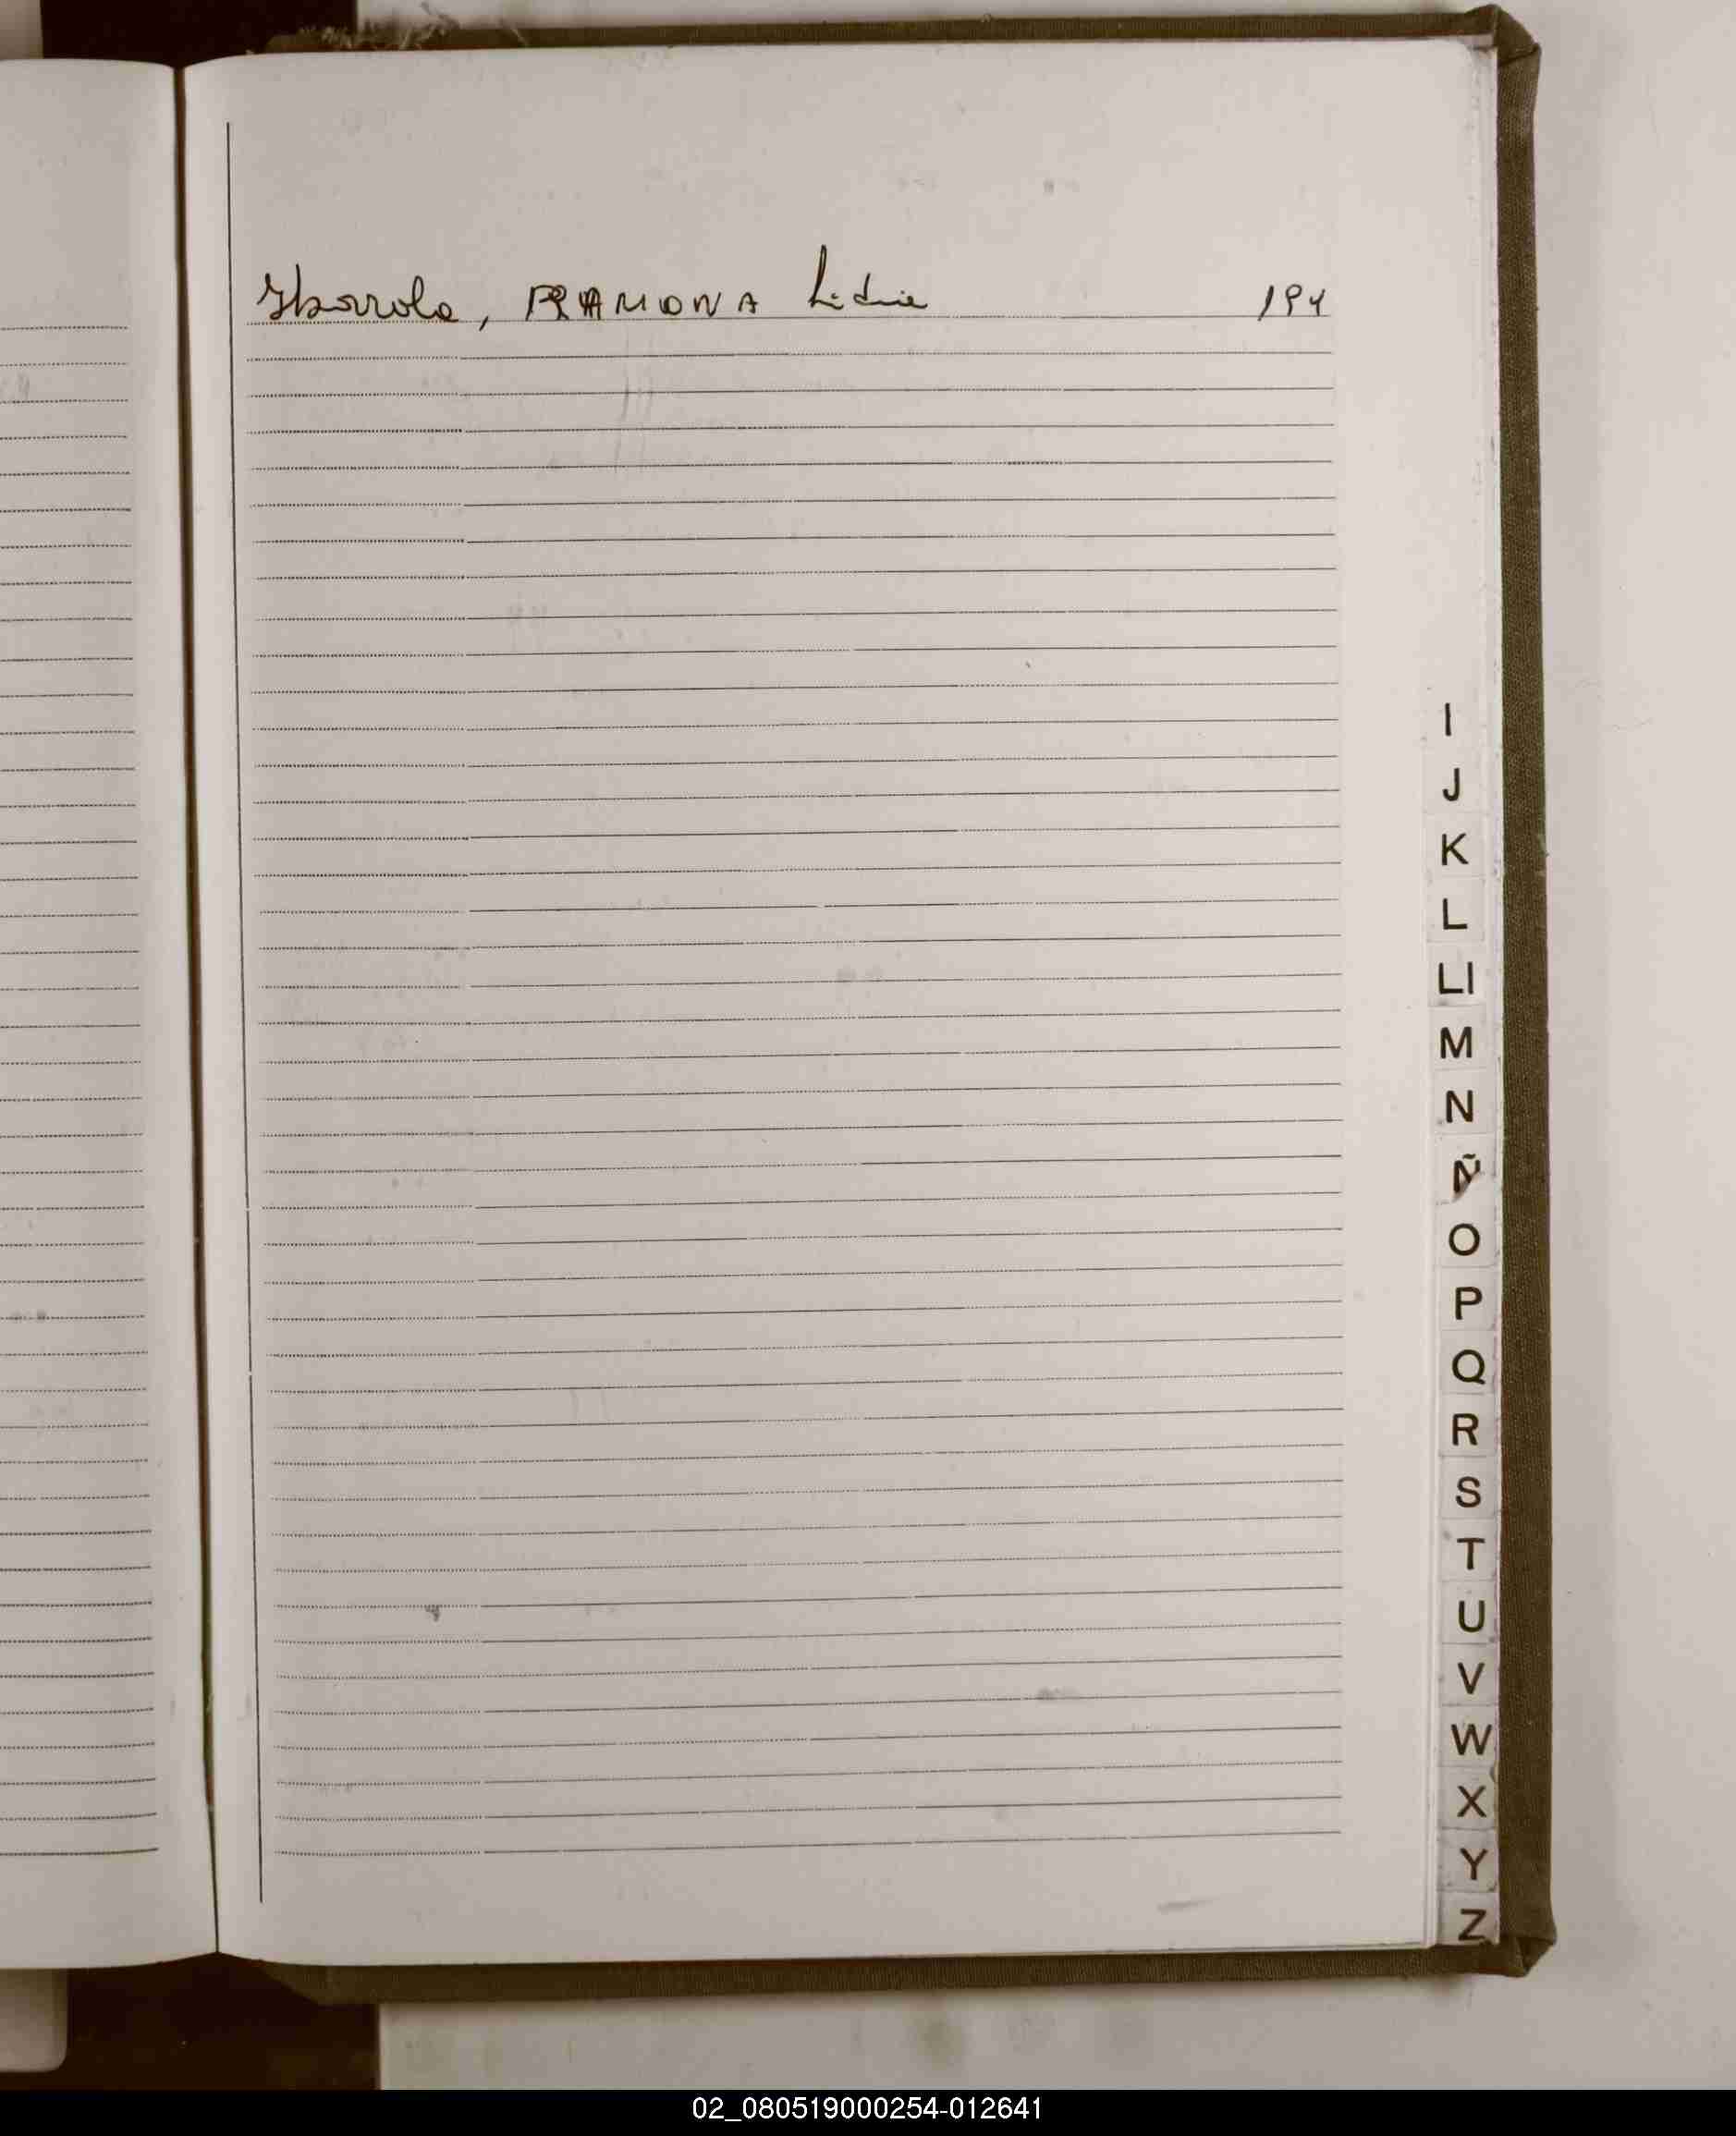 Ibarrola, RAMONA Lidia 194
I
J
K
L
Ll
M
N
Ñ
O
P
Q
R
S
T
U
V
W
X
Y
Z
02_080519000254-012641